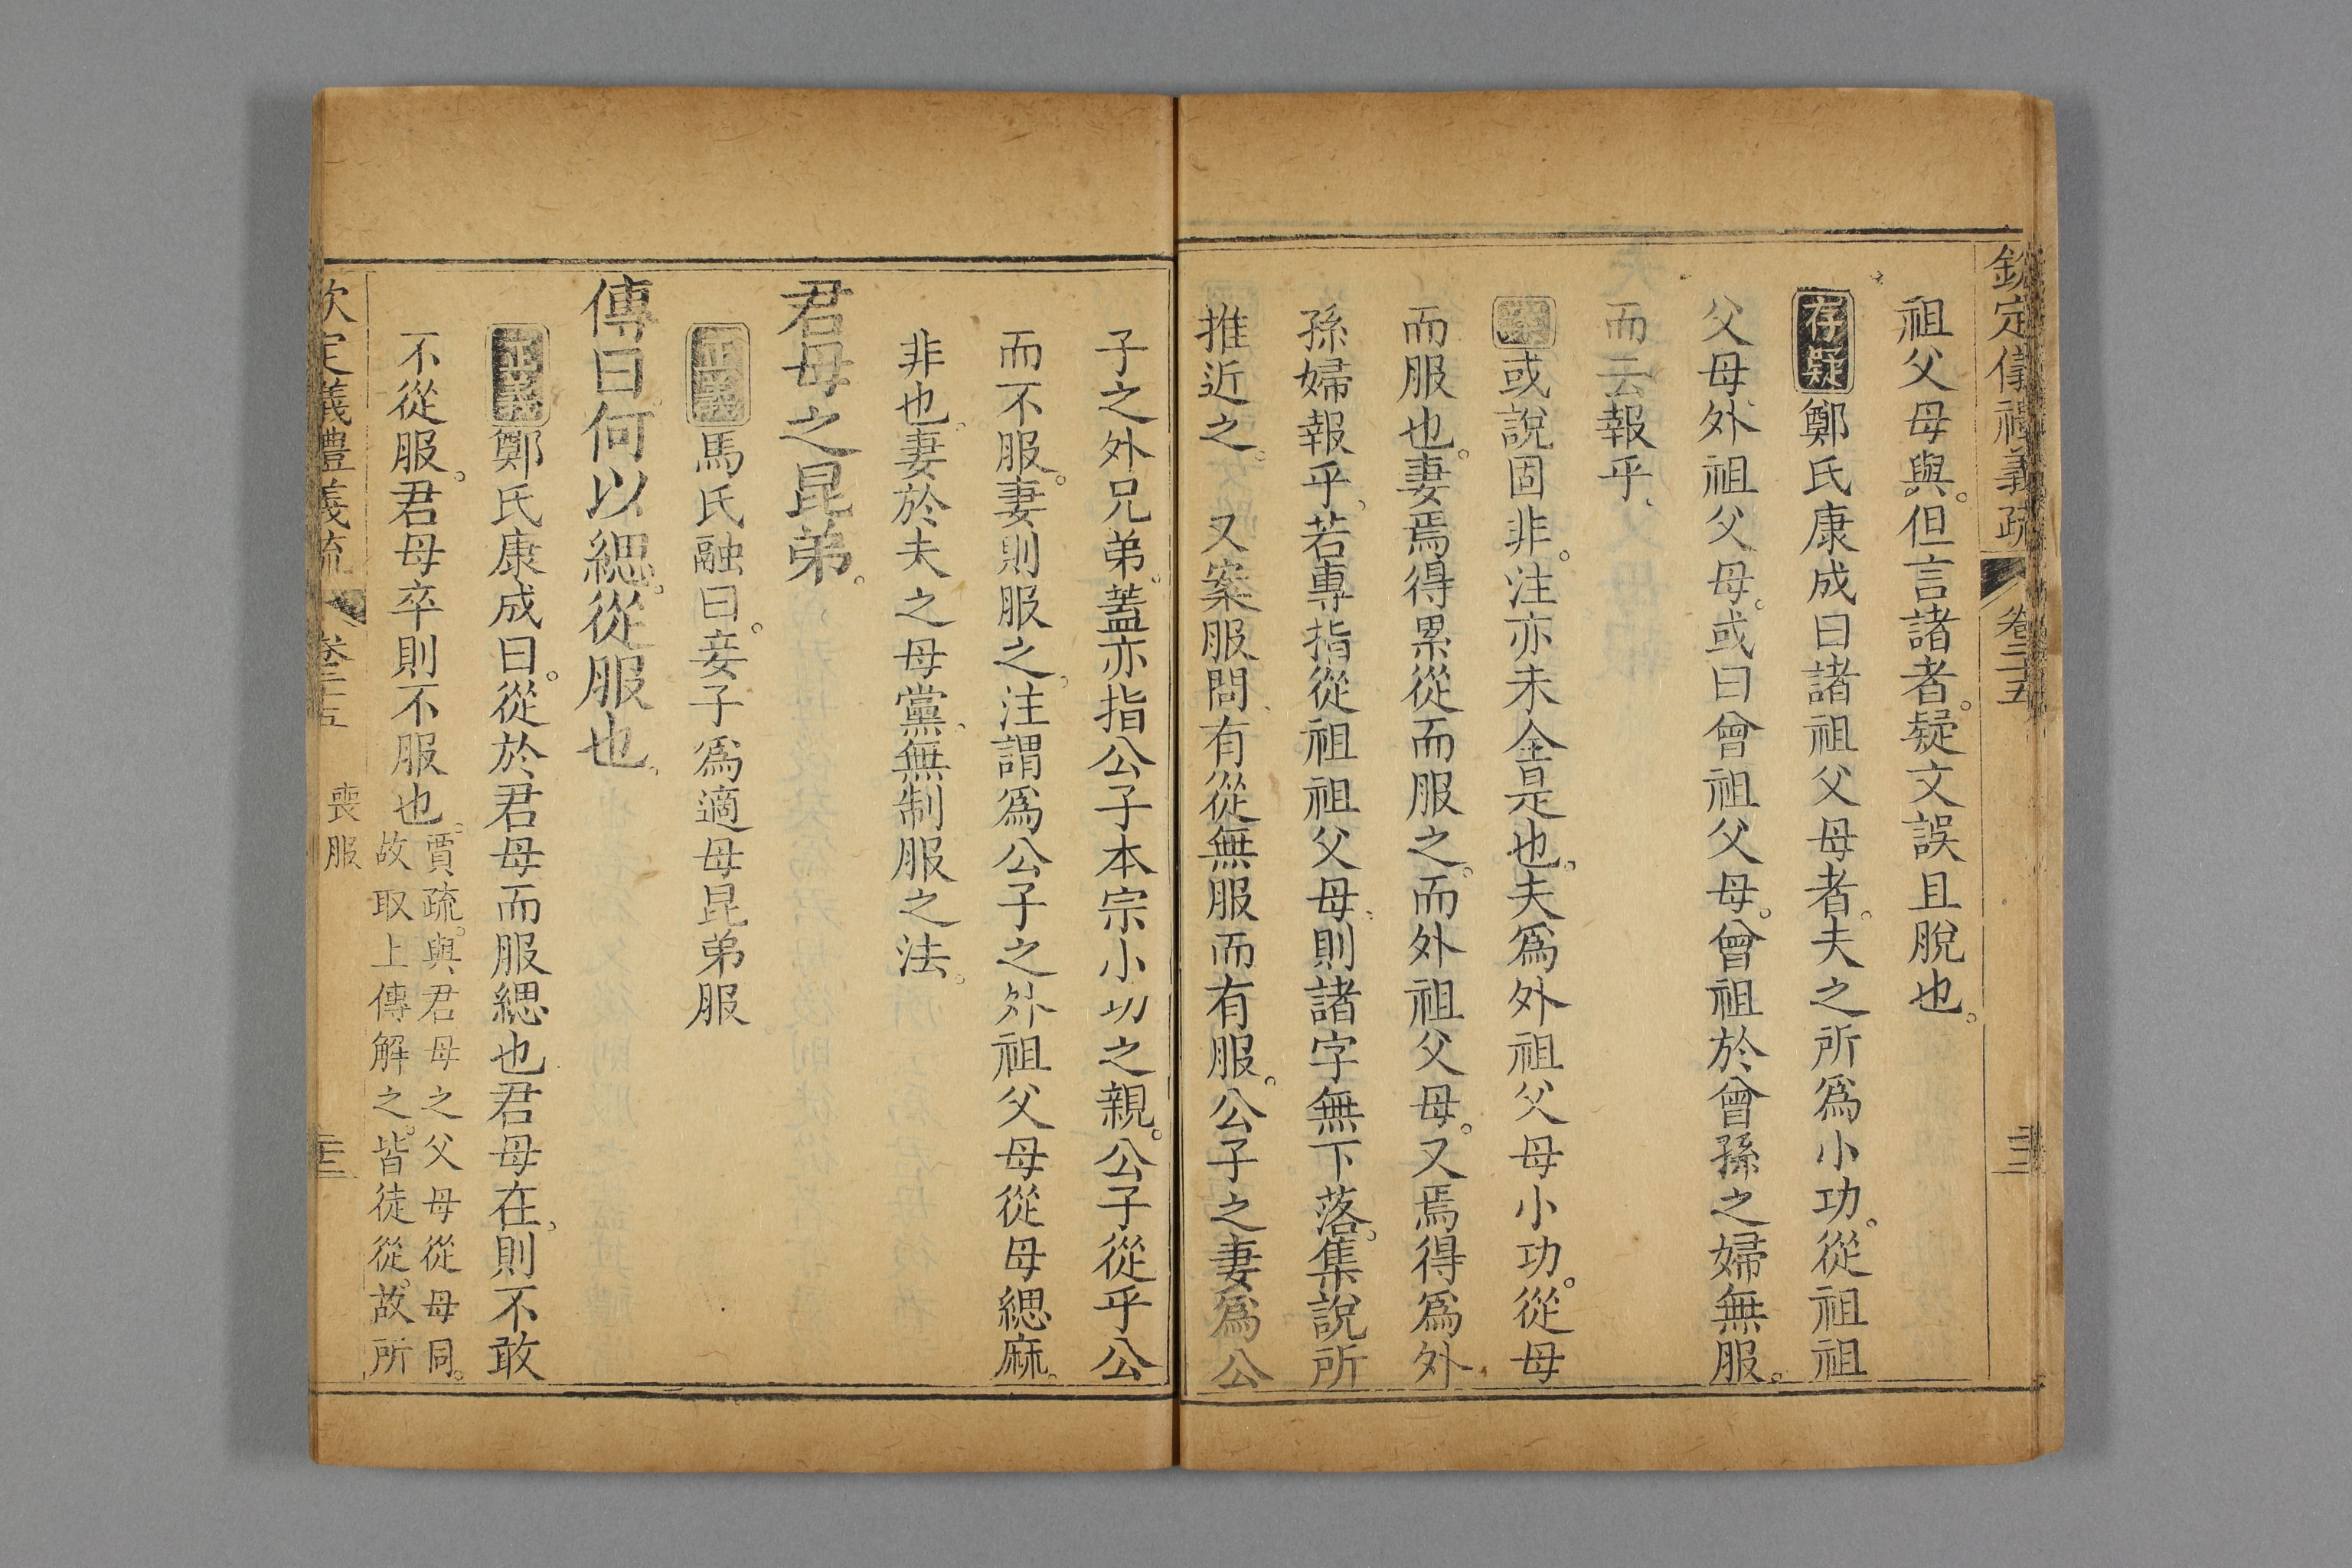 欽定儀禮義疏 卷二十五
祖父母與。但言諸者。疑文誤且脫也。
存疑 鄭氏康成曰諸祖父母者。夫之所爲小功。從祖祖
父母、外祖父母。或曰曾祖父母。曾祖於曾孫之婦無服。
而云報乎、
案 或說固非。注亦未全是也。夫爲外祖父母小功。從母
而服也。妻焉得累從而服之。而外祖父母。又焉得爲外
孫婦報乎、若專指從祖祖父母、則諸字無下落。集說所
推近之。 又案服問、有從無服而有服。公子之妻爲公
子之外兄弟。蓋亦指公子本宗小功之親。公子從乎公
而不服。妻則服之。注謂爲公子之外祖父母從母緦麻。
非也、妻於夫之母黨、無制服之法。
君母之昆弟。
正義 馬氏融曰。妾子爲適母昆弟服
傳曰何以緦。從服也。
正義 鄭氏康成曰。從於君母而服緦也君母在、則不敢
不從服。君母卒則不服也。
賈疏。與君母之父母從母同。
故取上傳解之。皆徒從。故所
欽定儀禮義疏 卷二十五 喪服